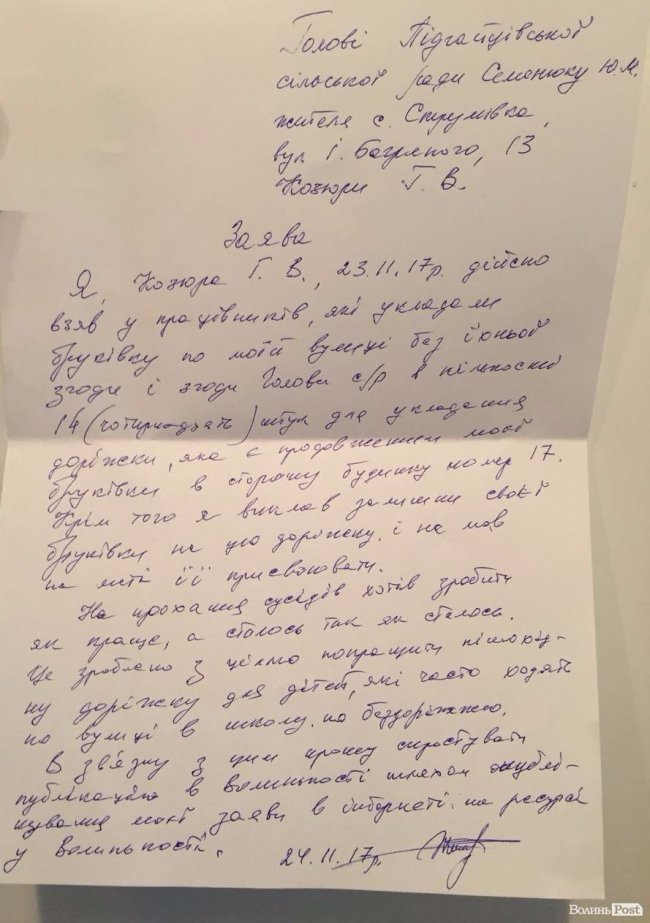 Голові Підгайцівської
сільської ради Семенюку Ю.М.
жителя с. Струмівка,
вул І. Багряного, 13
Козюри Г. В.
Заява
Я, Козюра Г. В., 23.11.17р. дійсно
взяв у працівників, які укладали
бруківку по моїй вулиці без їхньої
згоди і згоди Голови с/р в кількості
14 (чотирнадцять) штук для укладання
доріжки, яка є продовженням моєї
бруківки в сторону будинку номер 17.
Крім того я виклав залишки своєї
бруківки на цю доріжку, і не мав
на меті її присвоювати.
На прохання сусідів хотів зробити
як краще, а сталось так як сталось.
Це зроблено з ціллю покращити пішохід-
ну доріжку для дітей, які часто ходять
по вулиці в школу по бездоріжжю.
В зв'язку з цим прошу спростувати
публікацію в Волиньпості шляхом опублі-
кування моєї заяви в інтернеті на ресурсі
у Волиньпості.
24.11.17р.
ВолиньPost